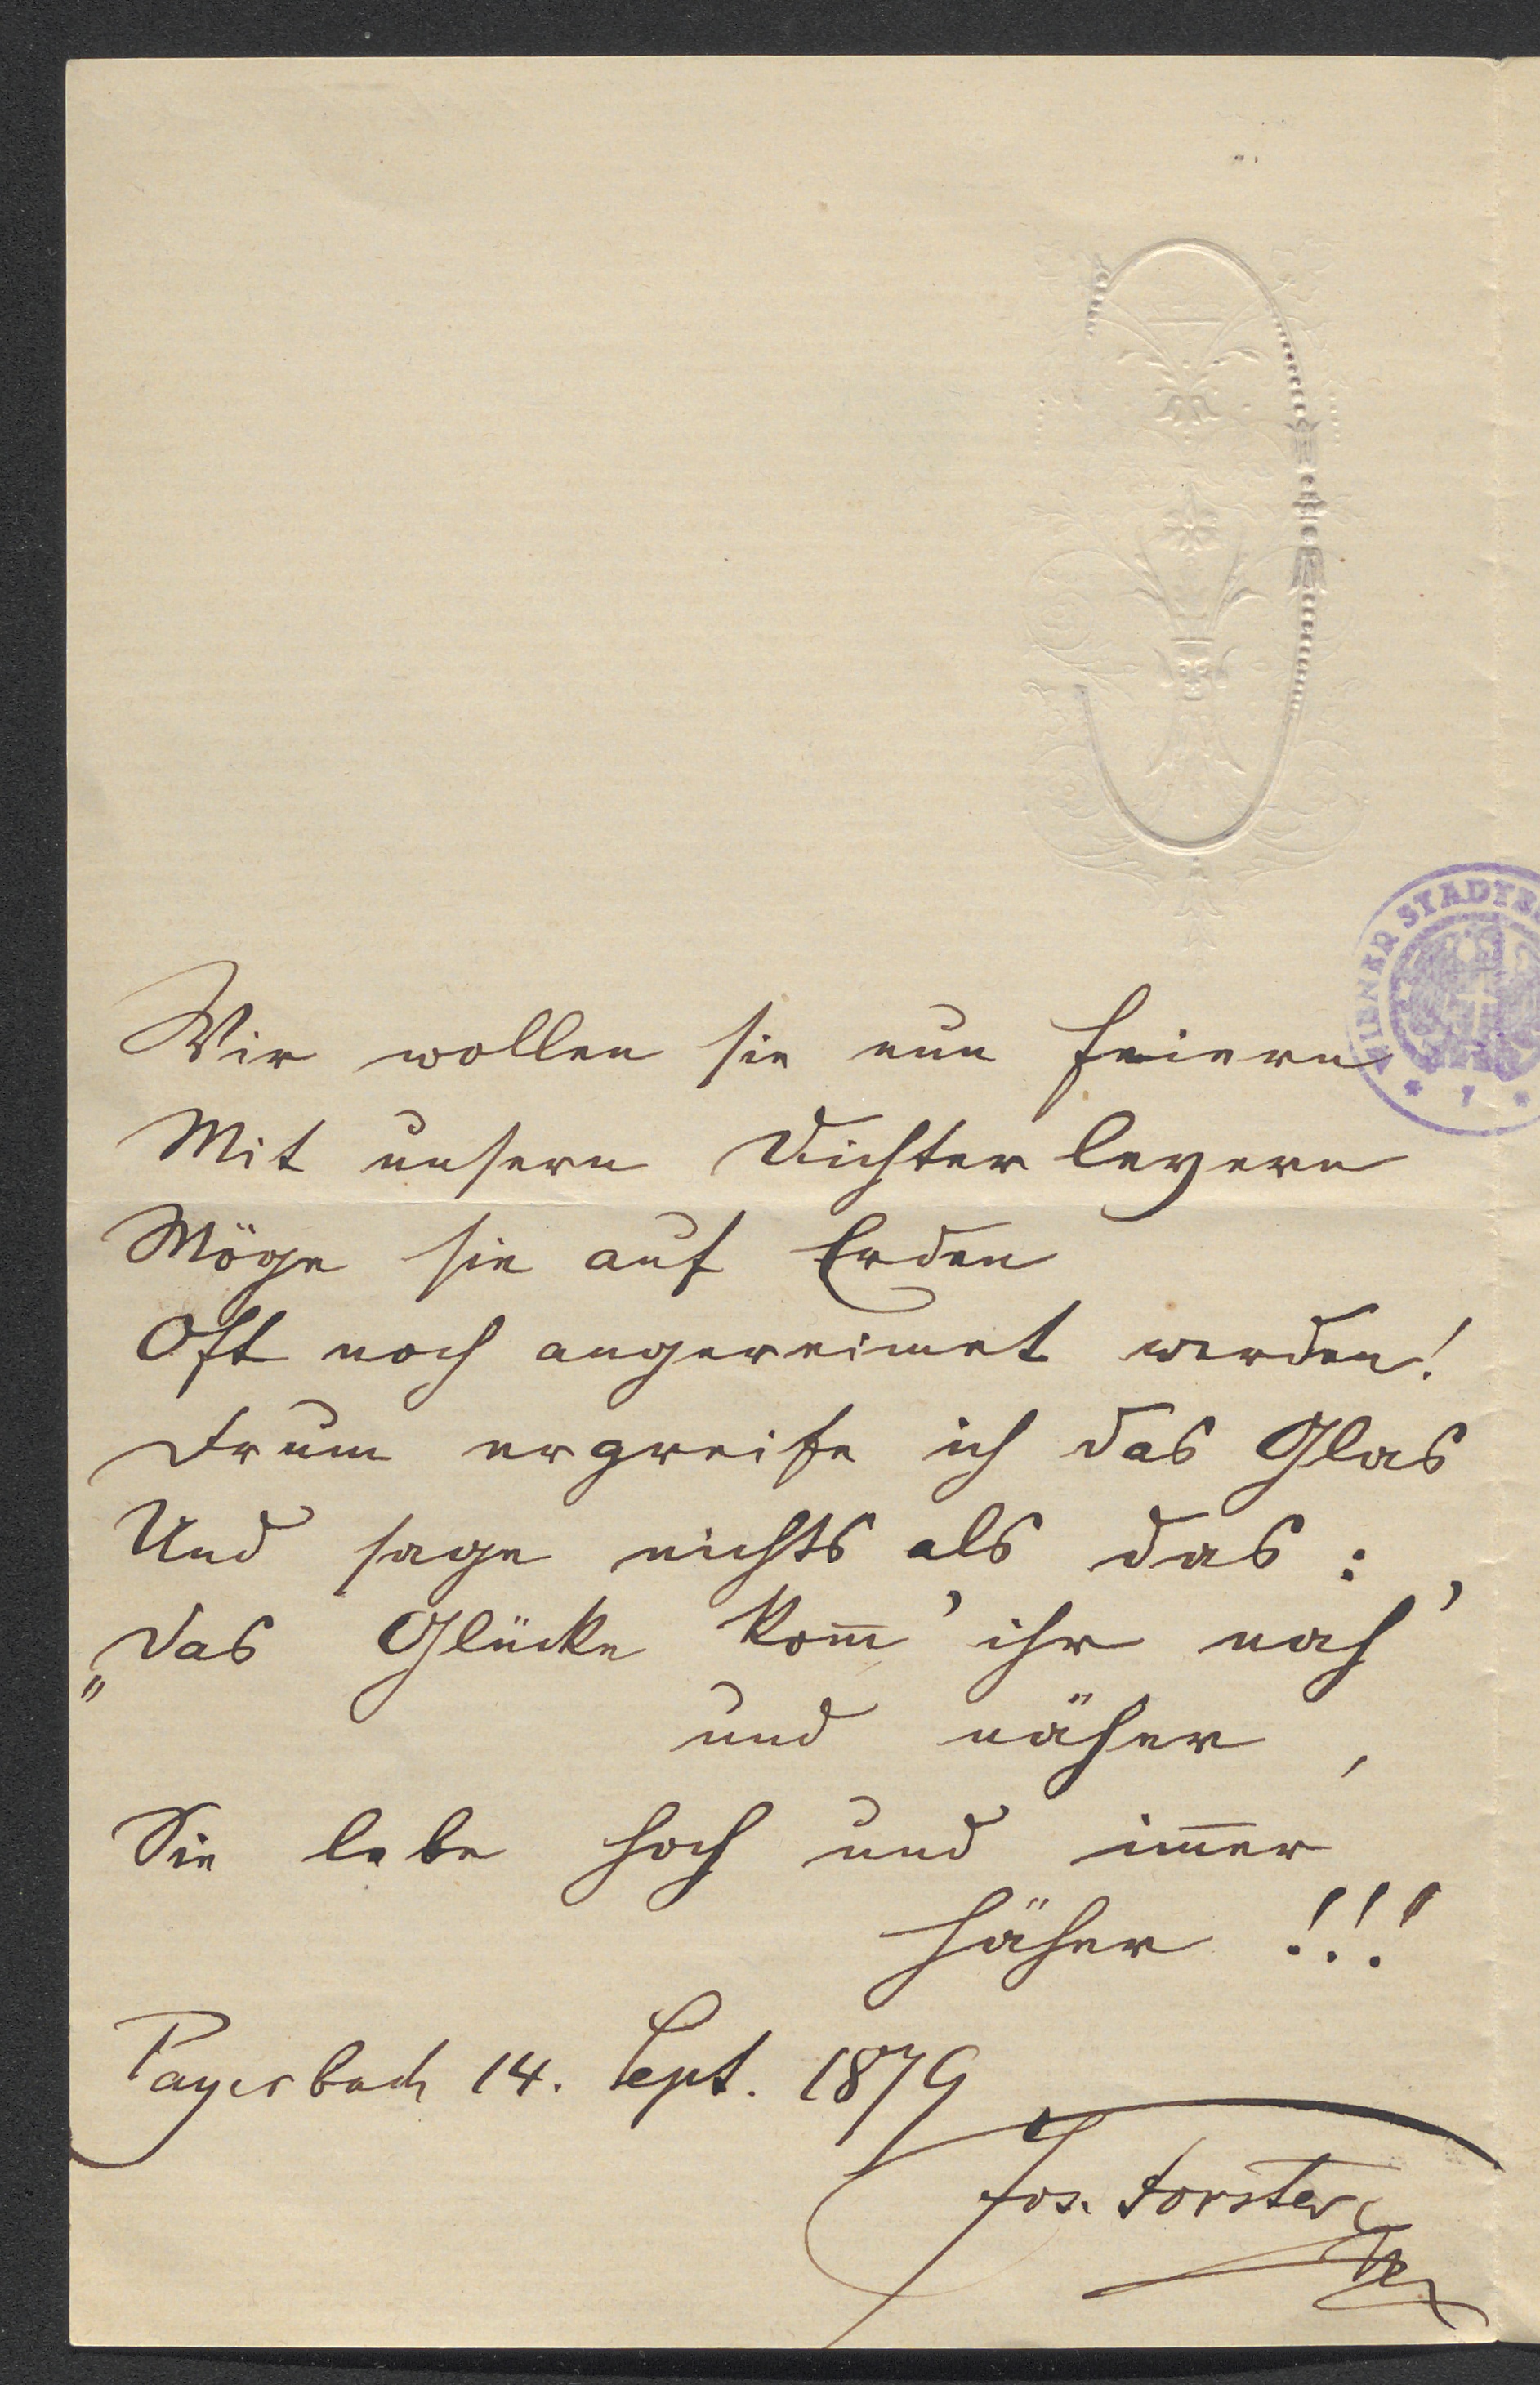 WIENER STADTB
* 7 *
Wir wollen sie nun feiern
Mit unsern Dichterleyern
Möge sie auf Erden
Oft noch angereimet werden!
Drum ergreife ich das Glas
Und sage nichts als das:
„Das Glücke kom̅' ihr nah'
und näher,
Sie lebe hoch und im̅er
höher!!!
Payerbach 14. Sept. 1879
Jos. Forster